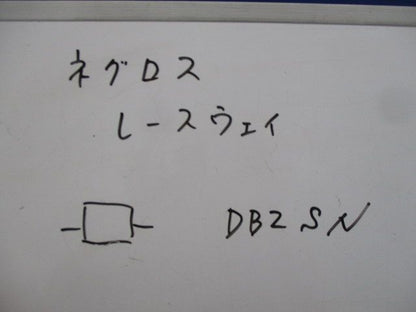 ネグロス
レースウェイ
DB2SN